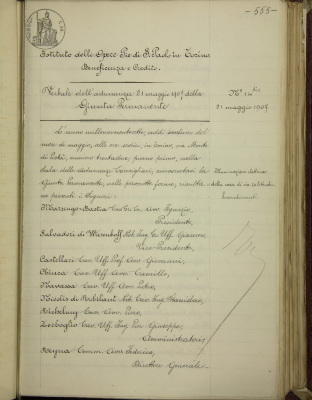 - 555 -
Istituto delle Opere Pie di S. Paolo in Torino
Beneficenza e Credito.
Verbale dell'adunanza 21 maggio 1907 della
Giunta Permanente
21 maggio 1907
L'anno millenovecentosette, addì ventuno del
mese di maggio, alle ore sedici, in Torino, via Monte
di Pietà, numero trentadue, piano primo, nella
Sala delle adunanze Consigliari, convocatasi la
Giunta Permanente, nelle prescritte forme, risulta=
no presenti i Signori:
della casa di via
Marsengo-Bastia Ignazio,
Presidente,
Salvadori di Wiesenhoff Nob. Ing. Gr. Uff. Giacomo,
Vice-Presidente,
Castellari Cav. Uff. Prof. Avv. Giovanni,
Chiesa Cav. Uff. Avv. Camillo,
Ravassa Cav. Uff. Avv. Pietro,
Nicolis di Robilant Nob. Cav. Ing. Stanislao,
Cav. Avv. Pietro,
Zerboglio Cav. Uff. Ing. Giuseppe,
Amministratori,
Reyna Comm. Avv. Federico,
Direttore Generale.